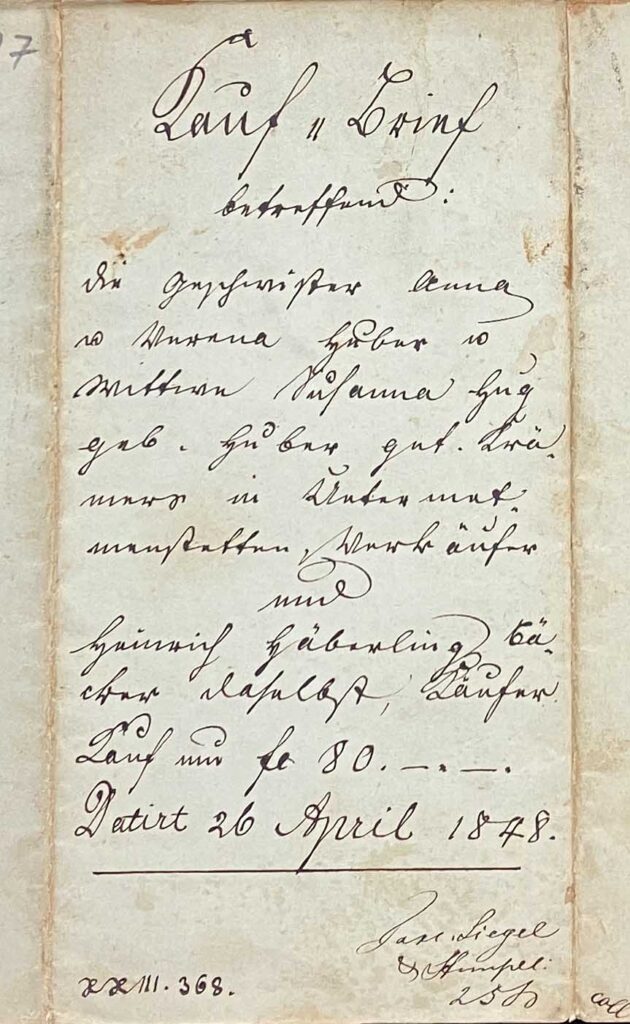 17
Kauf „ Brief
betreffend:
die Geschwister Anna
u Verena Huber u
Wittwe Susanna Hug
geb. Huber gnt. Krä-
mers in Untermet-
menstetten, Verkäufer
und
Heinrich Häberling Bä-
cker daselbst, Käufer.
Kauf um fl 80.—.—.
Datirt 26 April 1848.
Taxe. Siegel
& Stempel:
25 ß
XXIII. 368.
coll